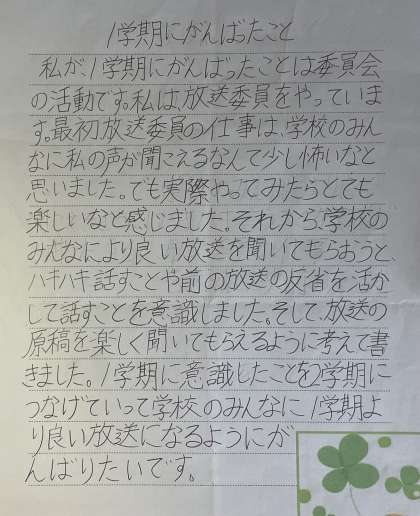 1学期にがんばったこと
私が、1学期にがんばったことは委員会
の活動です。私は、放送委員をやっていま
す。最初放送委員の仕事は、学校のみん
なに私の声が聞こえるなんて少し怖いなと
思いました。でも実際やってみたらとても
楽しいなと感じました。それから、学校の
みんなにより良い放送を聞いてもらおうと、
ハキハキ話すことや前の放送の反省を活か
して話すことを意識しました。そして、放送の
原稿を楽しく聞いてもらえるように考えて書
きました。1学期に意識したことを2学期に
つなげていって学校のみんなに1学期よ
り良い放送になるようにが
んばりたいです。